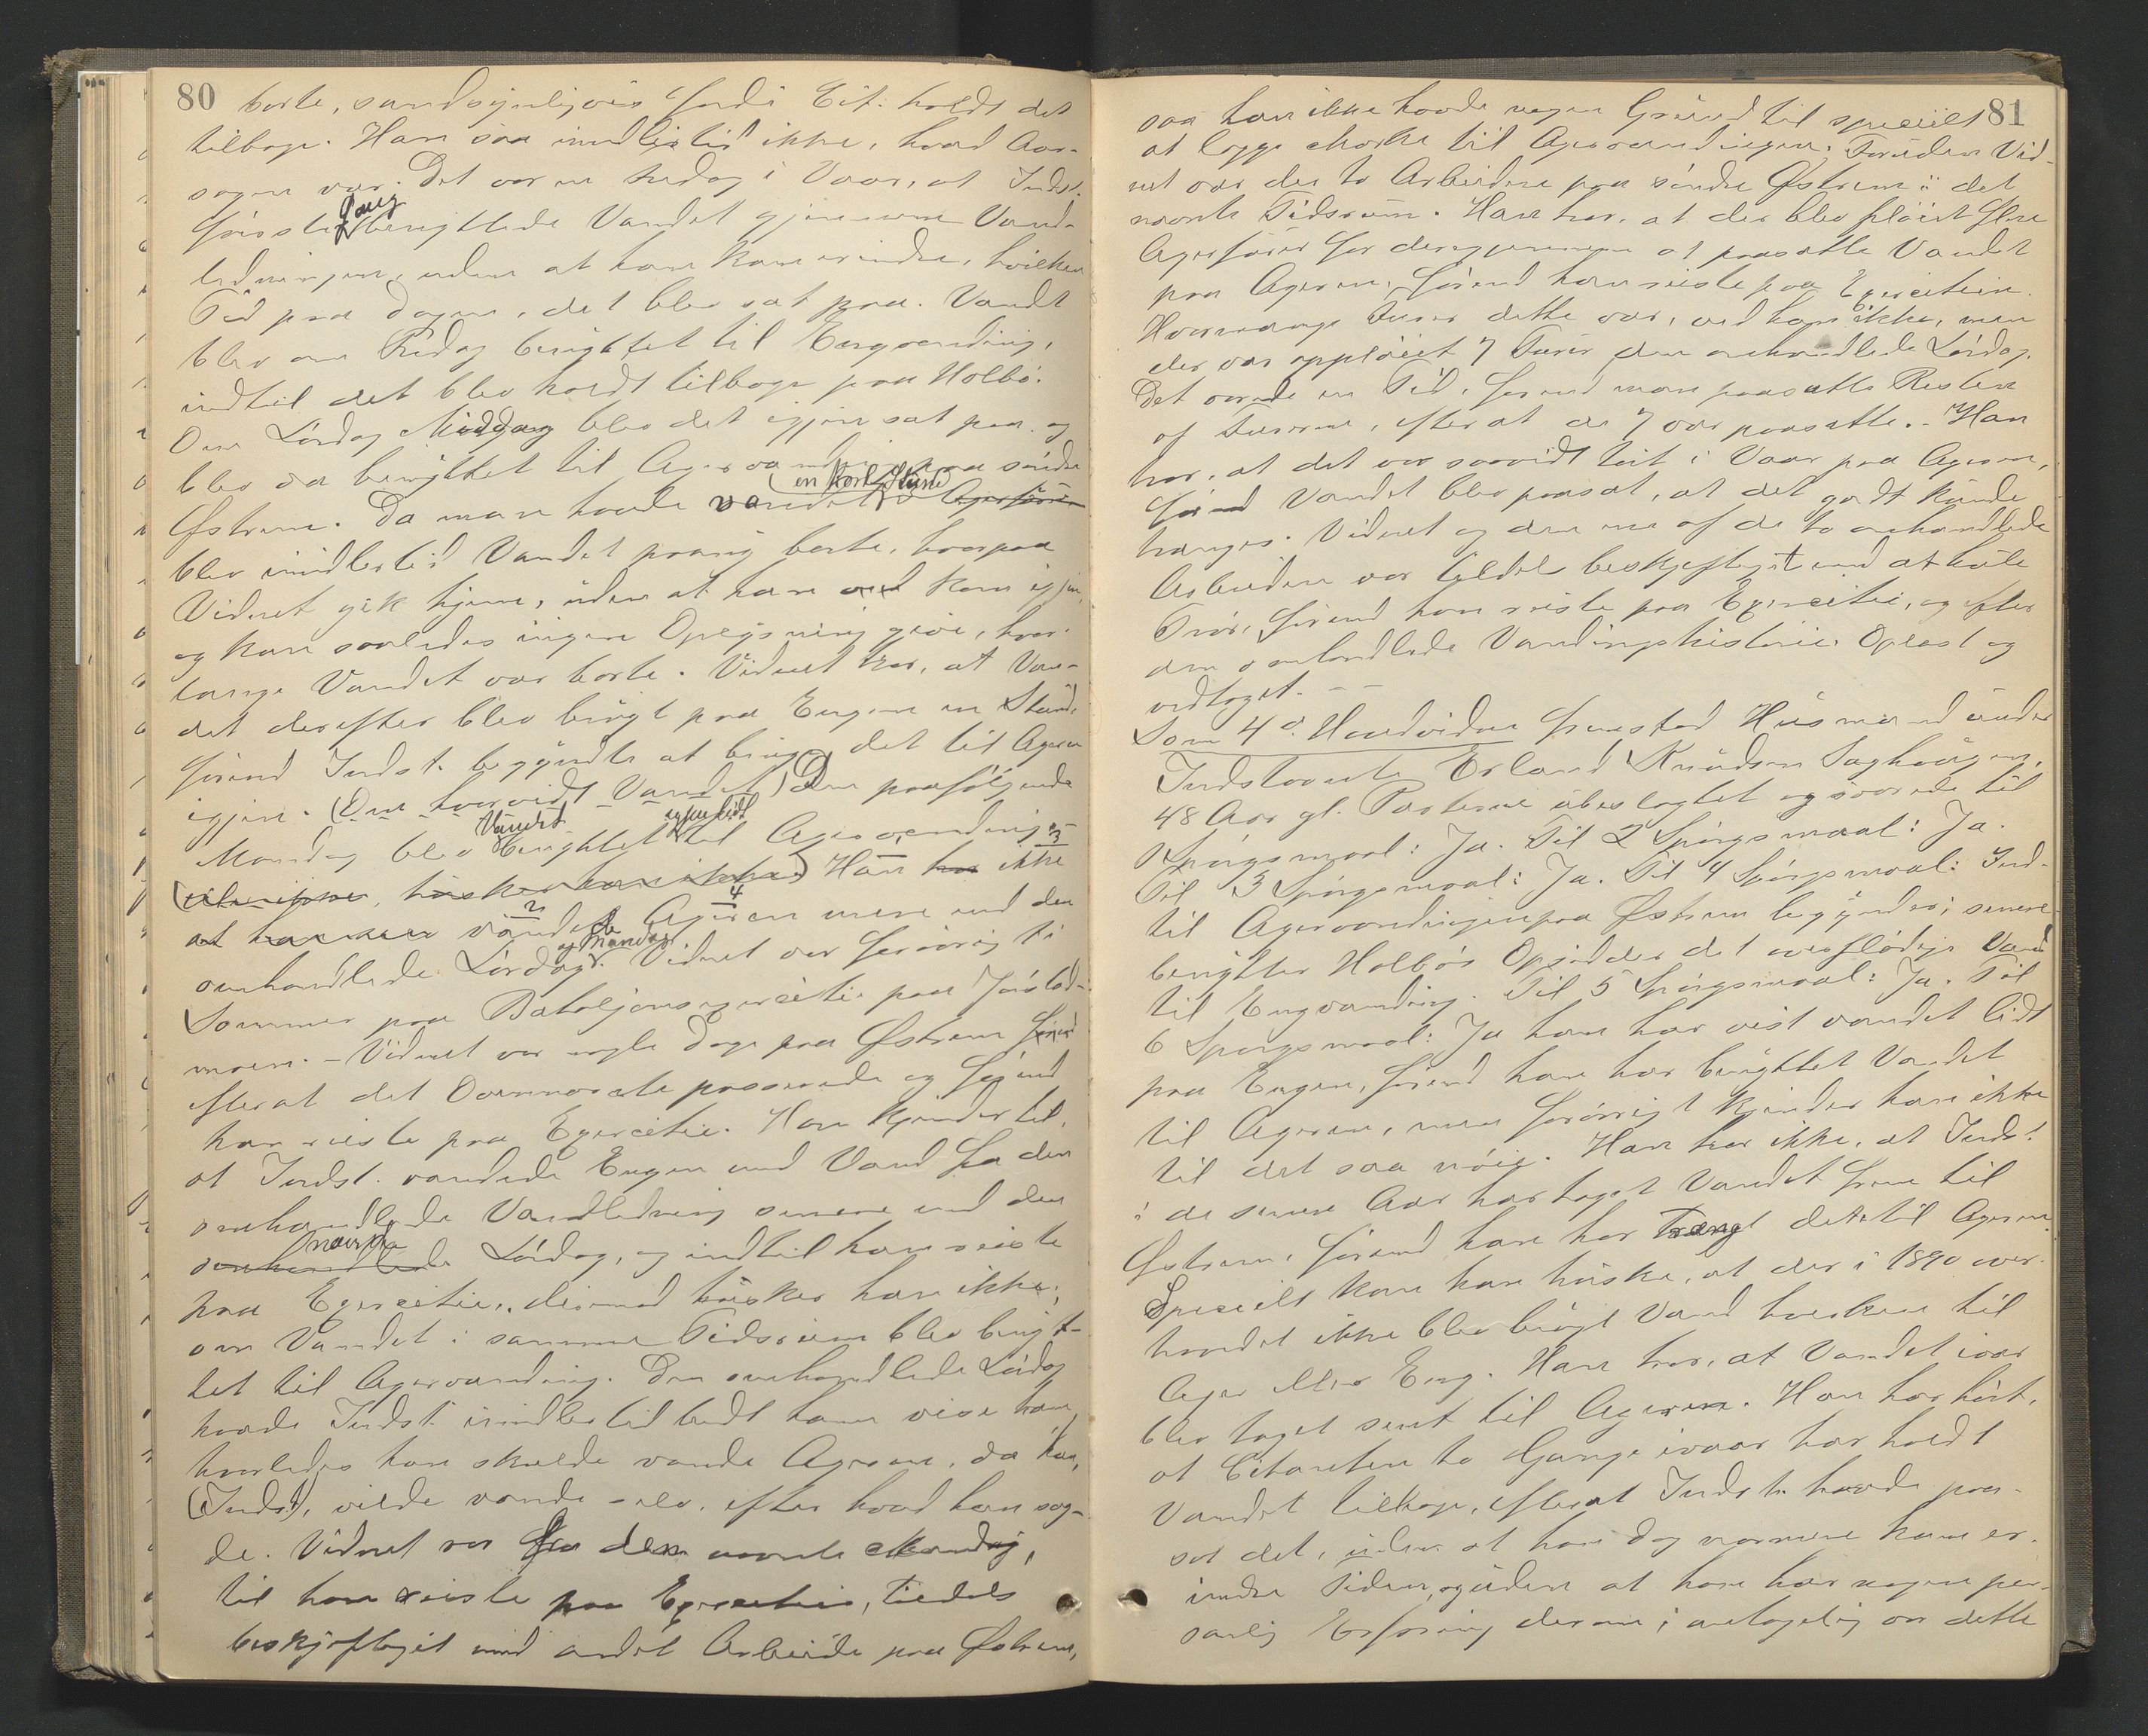 80
borte, sandsynligvis fordi Cit. holdt det
tilbage. Han saa imidlertid ikke, hvad Aar-
sagen var. Det var en Fredag i Vaar, at Indst.
første Gang benyttede Vandet gjennem Vand-
ledningen, uden at han kan erindre, hvilken
Tid paa Dagen, det blev sat paa. Vandet
blev om Fredag benyttet til Engvanding,
indtil det blev holdt tilbage paa Holbø.
Om Lørdag Middag blev det igjen sat paa og
blev da benyttet til Agervanding paa søndre
Østrem. Da man havde vandet (en kort Stund) i Agerfører
blev imidlertid Vandet paany borte, hvorpaa
Vidnet gik hjem, uden at han ved kom igjen,
og kan saaledes ingen Oplysning give, hvor-
længe Vandet var borte. Vidnet tror, at Van-
det derefter blev brugt paa Engen en Stund,
førend Indst. begyndte at bruge det til Ageren
igjen. (Om hvorvidt Vandet) Den paafølgende
Mandag blev Vandet benyttet til Agervanding
husker han ikke) Han tror ikke
at vandede Ageren mere end den
omhandlede Lørdag og Mandag. Vidnet var forøvrig i
Sommer paa Bataljonsexercitie paa Jørstad-
moen. – Vidnet var nogle Dage paa Østrem førend
efterat det Ovennævnte passerede og førend
han reiste paa Exercitie. Han kjender til,
at Indst. vandede Engen med Vand fra den
omhandlede Vandledning senere end den
nævnte Lørdag, og indtil han reiste
paa Exercitie, derimod husker han ikke,
om Vandet i samme Tidsrum blev benyt-
tet til Agervanding. Den omhandlede Lørdag
havde Indst. imidlertid budt ham vise ham
hvorledes han skulde vande Ageren, da han,
(Indst), vilde vande selv, efter hvad han sag-
de. Vidnet var fra den nævnte Mandag,
til han reiste paa Exercitie, tildels
beskjæftiget med andet Arbeide paa Østrem,
81
saa han ikke havde nogen Grund til specielt
at lægge Mærke til Agervandingen. Foruden Vid-
net var der to Arbeidere paa søndre Østrem i det
nævnte Tidsrum. Han tror, at der blev pløiet flere
Agerfører for derigjennem at paasætte Vandet
paa Ageren, førend han reiste paa Exercitien.
Hvormange Furer dette var, ved han ikke, men
der var oppløiet 7 Furer den omhandlede Lørdag.
Det varede en Tid, førend man paasatte Resten
af Furerne, efterat de 7 var paasatte. – Han
tror, at det var saavidt tørt i Vaar paa Ageren,
førend Vandet blev paasat, at det godt kunde
trænges. Vidnet og den ene af de to omhandlede
Arbeidere var tildels beskjeftiget med at hule
Trør, førend han reiste paa Exercitie, og efter
den omhandlede Vandingshistorie. Oplæst og
vedtaget. – –
Som 4de Hovedvidne fremstod Husmand under
Indstævnte Erland Knudsen Saghaugen,
48 Aar gl. Parterne ubeslægtet og svarede til
1 Spørgsmaal: Ja. Til 2 Spørgsmaal: Ja.
Til 3 Spørgsmaal: Ja. Til 4 Spørgsmaal: Ind-
til Agervandingen paa Østrem begynder; senere
benytter Holbøs Opsidder det overflødige Vand
til Engvanding. Til 5 Spørgsmaal: Ja. Til
6 Spørgsmaal: Ja han har vist vandet lidt
paa Engen, førend han har benyttet Vandet
til Ageren, men forøvrigt kjender han ikke
til det saa nøie. Han tror ikke, at Indst.
i de senere Aar har taget Vandet frem til
Østrem, førend han har trængt det til Ageren.
Specielt kan han huske, at der i 1890 over-
hovedet ikke blev brugt Vand hverken til
Ager eller Eng. Han tror, at Vandet ivaar
blev taget sent til Ageren. Han har hørt,
at Citanten to Gange ivaar har holdt
Vandet tilbage, efterat Indst. havde paa-
sat det, uden at han dog nærmere kan er-
indre Tiden, og uden at han har nogen per-
sonlig Erfaring derom; antagelig var dette